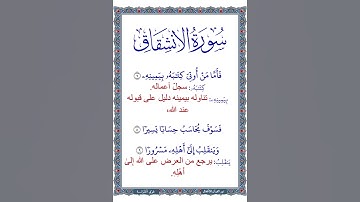 سُورَةُ الِانْشِقَاقِ
فَأَمَّا مَنْ أُوتِيَ كِتَٰبَهُۥ بِيَمِينِهِۦ ٧
كِتَٰبَهُۥ: سجلّ أعماله.
بِيَمِينِهِۦ: تناوله بيمينه دليل على قبوله
عند الله.
فَسَوْفَ يُحَاسَبُ حِسَابًا يَسِيرًا ٨
وَيَنقَلِبُ إِلَىٰٓ أَهْلِهِۦ مَسْرُورًا ٩
يَنقَلِبُ: يرجع من العرض على الله إلىٰ
أهْلِه.